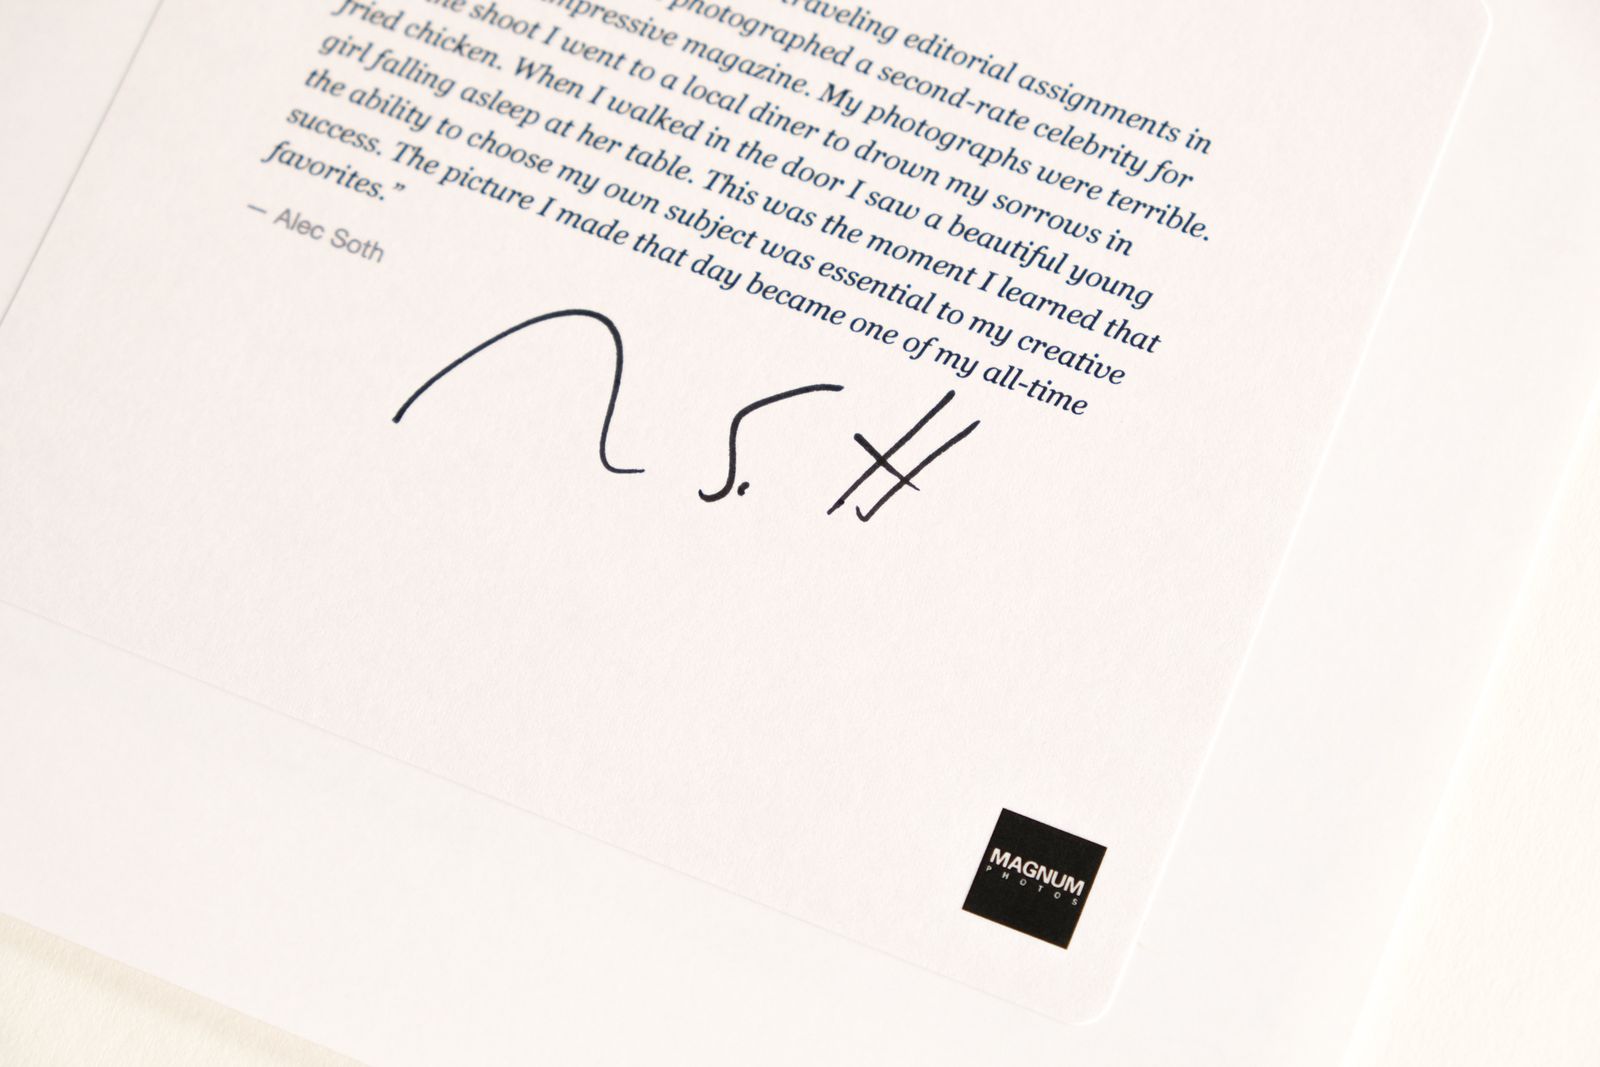 traveling editorial assignments in
photographed a second-rate celebrity for
impressive magazine. My photographs were terrible.
shoot I went to a local diner to drown my sorrows in
fried chicken. When I walked in the door I saw a beautiful young
girl falling asleep at her table. This was the moment I learned that
the ability to choose my own subject was essential to my creative
success. The picture I made that day became one of my all-time
favorites.”
— Alec Soth
MAGNUM
PHOTOS